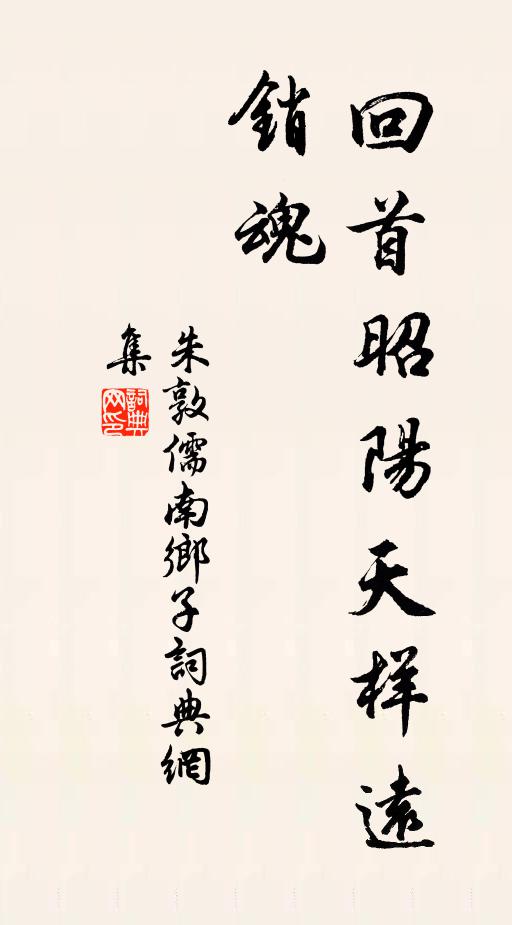 回首昭陽天样遠
銷魂
朱敦儒南鄉子詞典網
集
詞典
网印